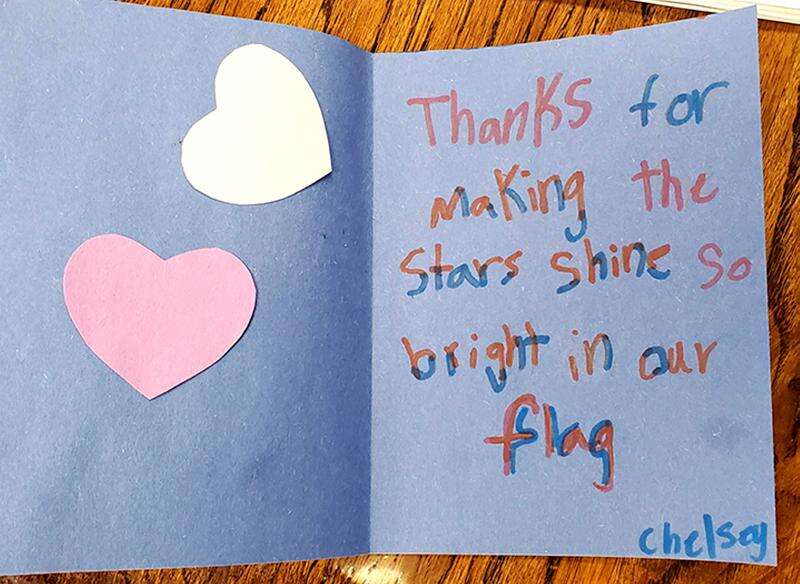 Thanks for
making the
Stars shine so
bright in our
flag
chelsey